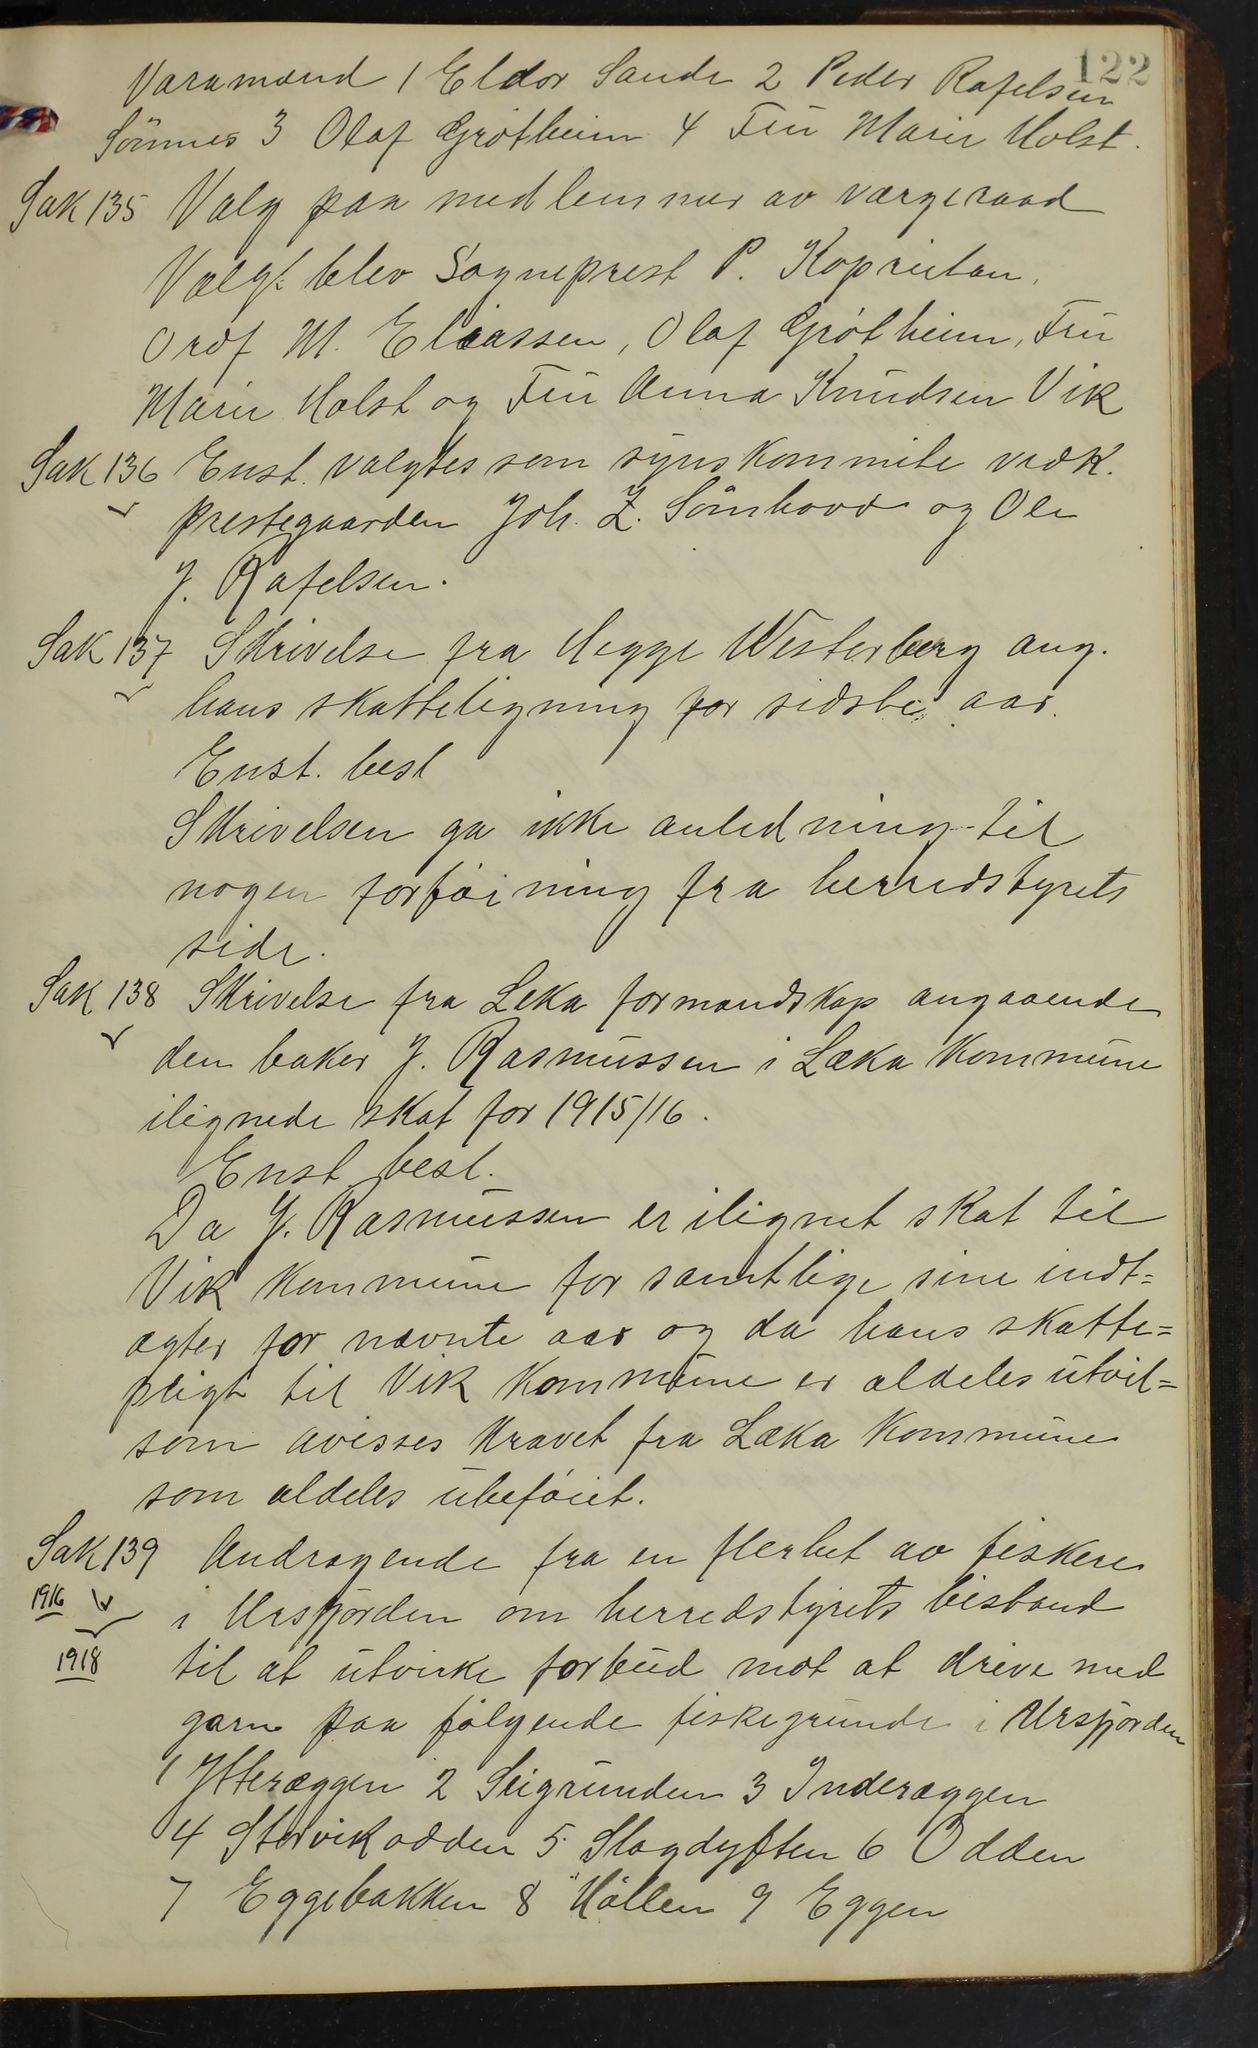 122
Varamænd 1 Eldor Sande 2 Peder Rafelsen
Sömnes 3 Olaf Grøtheim 4 Fru Marie Holst.
Sak 135 Valg paa medlemmer av værgeraad
Valgt blev Sogneprest P. Kopreitan,
Ordf M. Eliassen, Olaf Grøtheim, Fru
Marie Holst og Fru Anna Knudsen Vik
Sak 136 Enst. valgtes som synskommite vedk.
prestegaarden Joh. Z. Sömhovd og Ole
J. Rafelsen.
Sak 137 Skrivelse fra Hegge Westerberg ang.
hans skatteligning for sidste aar.
Enst. besl
Skrivelsen ga ikke anledning til
nogen forföining fra herredstyrets
side.
Sak 138 Skrivelse fra Leka formandskap angaaende
den baker J. Rasmussen i Leka Kommune
ilignede skat for 1915/16.
Enst besl.
Da J. Rasmussen er ilignet skat til
Vik Kommune for samtlige sine indt=
ægter for nævnte aar og da hans skatte=
pligt til Vik Kommune er aldeles utvil=
som avisses kravet fra Leka Kommune
som aldeles ubeföiet.
Sak 139 Andragende fra en flerhet av fiskere
1916 i Ursfjorden om herredstyrets bistand
1918 til at utvirke forbud mot at drive med
garn paa fölgende fiskegrunde i Ursfjorden
1 Ytteræggen 2 Seigrunden 3 Inderæggen
4 Storvikodden 5 Slogdyften 6 Odden
7 Eggebakken 8 Hållen 9 Eggen